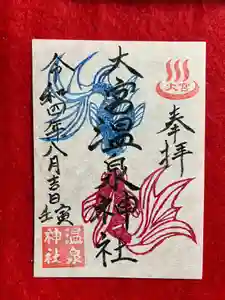 奉拝
大宮
大宮温泉神社
令和四年八月吉日
壬寅
温泉
神社